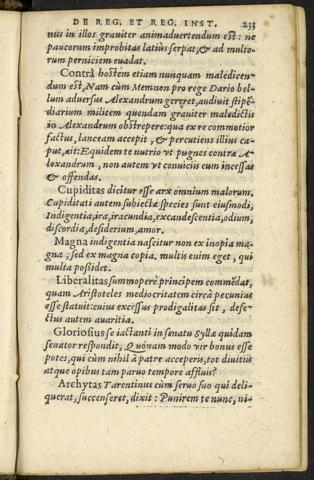 DE REG. ET REG. INST. 233
nus in illos graviter animadvertendum est: ne
paucorum improbitas latiùs serpat, & ad multo-
rum perniciem euadat.
Contrà hostem etiam nunquam maledicen-
dum est, Nam cùm Memnon pro rege Dario bel-
lum adversus Alexandrum gereret, audiuit stipē-
diarium militem quendam graviter maledictis
in Alexandrum obstrepere: qua re commotior
factus, lanceam accepit, & percutiens illius ca-
put, ait: Equidem te nutrio vt pugnes contra A-
lexandrum, non autem vt conuiciis eum incessas
& offendas.
Cupiditas dicitur esse arx omnium malorum,
Cupiditati autem subiectæ species sunt eiusmodi,
Indigentia, ira, iracundia, excandescentia, odium,
discordia, desiderium, amor.
Magna indigentia nascitur non ex inopia ma-
gna, sed ex magna copia. multis enim eget, qui
multa possidet.
Liberalitas summoperè principem commēdat,
quam Aristoteles mediocritatem circà pecunias
esse statuit: cuius excessus prodigalitas sit, defe-
ctus autem auaritia.
Gloriosius se iactanti in senatu Syllæ quidam
senator respondit, Quonam modo vir bonus esse
potes, qui cùm nihil à patre acceperis, tot diuitiis
atque opibus tam paruo tempore affluis?
Archytas Tarentinus cùm seruo suo qui deli-
querat, succenseret, dixit: Punirem te nunc, ni-